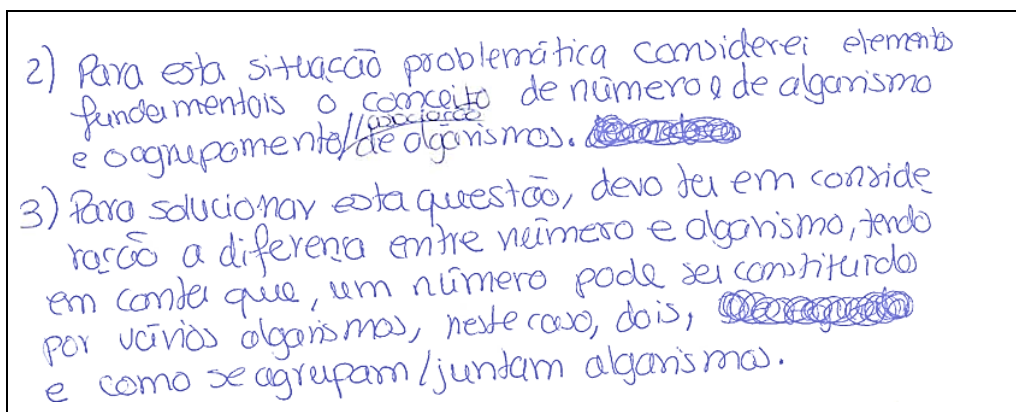 2) Para esta situação problemática considerei elementos
fundamentais o conceito de número e de algarismo
e o agrupamento/associação de algarismos.
3) Para solucionar esta questão, devo ter em conside
ração a diferença entre número e algarismo, tendo
em conta que, um número pode ser constituído
por vários algarismos, neste caso, dois,
e como se agrupam/juntam algarismos.